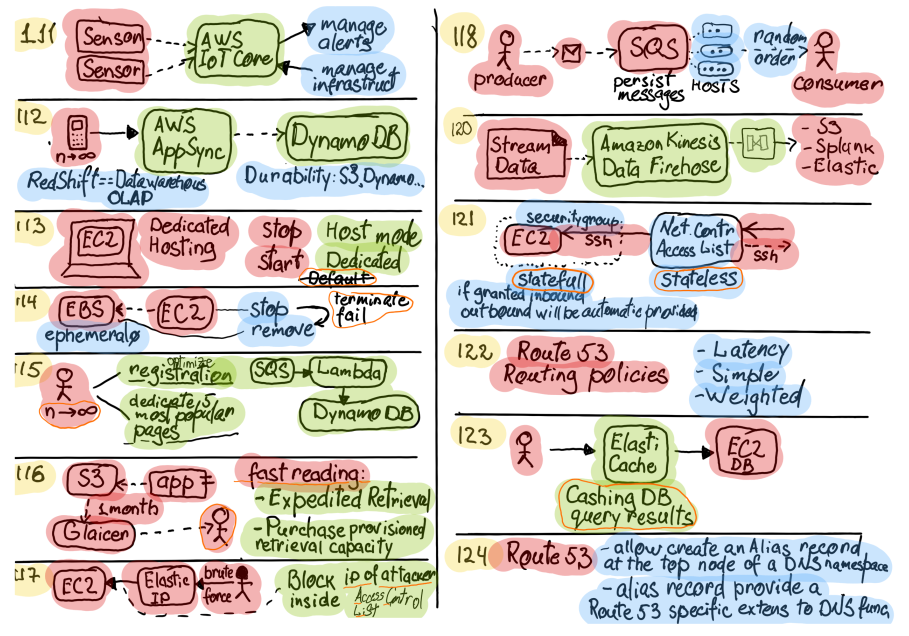 111
Sensor
Sensor
AWS
IoT Core
manage
alerts
manage
infrastruct
112
n→∞
AWS
AppSync
Dynamo DB
RedShift==Datawarehous
OLAP
Durability: S3, Dynamo...
113
EC2
Dedicated
Hosting
stop
start
Host mode
Dedicated
Default
114
EBS
EC2
stop
remove
terminate
fail
ephemeralø
115
n→∞
optimize
registration
SQS
Lambda
dedicate 5
most popular
pages
Dynamo DB
116
S3
app
1 month
Glaicer
fast reading:
- Expedited Retrieval
- Purchase provisioned
retrieval capacity
117
EC2
Elastic
IP
brute
force
Block IP of attacker
inside Access Control
List
118
producer
SQS
persist
messages
HOSTS
random
order
consumer
120
Stream
Data
Amazon Kinesis
Data Firehose
- S3
- Splunk
- Elastic
121
security group
EC2
ssh
Net. Contr
Access List
ssh
statefull
stateless
if granted inbound
outbound will be automatic provided
122
Route 53
Routing policies
- Latency
- Simple
- Weighted
123
Elasti
Cache
EC2
DB
Cashing DB
query results
124
Route 53
- allow create an Alias record
at the top node of a DNS namespace
- alias record provide a
Route 53 specific extens to DNS func,